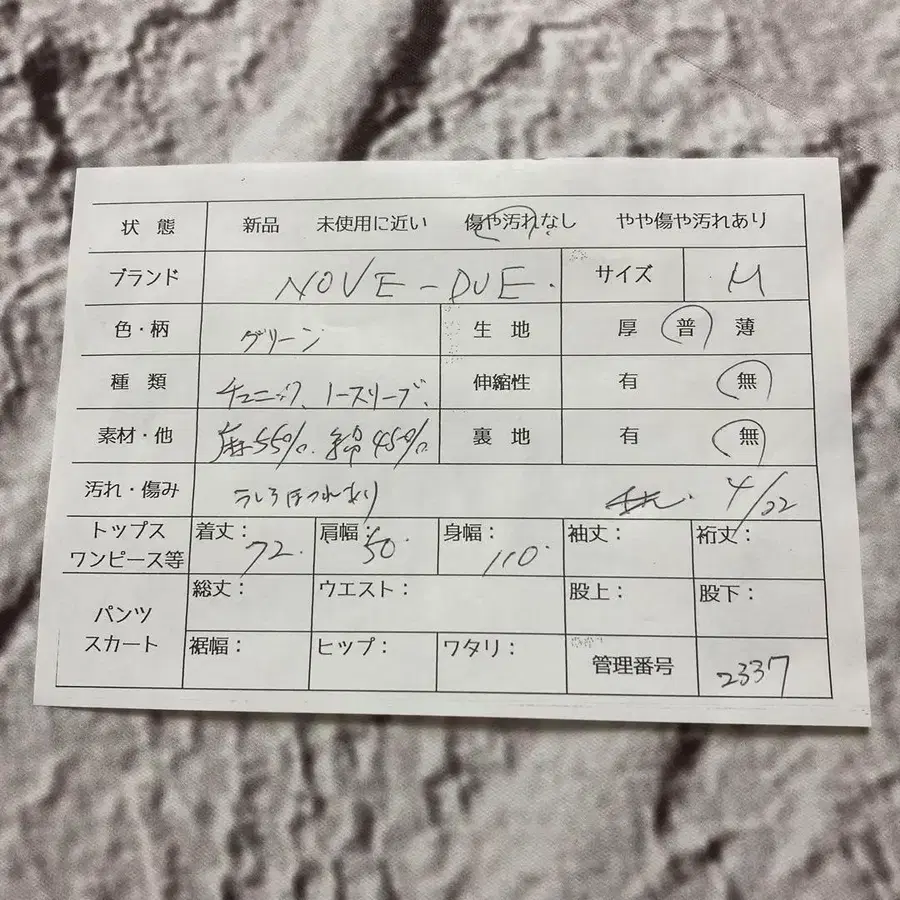 状態 新品 未使用に近い 傷や汚れなし やや傷や汚れあり
ブランド NOVE-DUE. サイズ M
色・柄 グリーン 生地 厚 普 薄
種類 チュニック、ノースリーブ、 伸縮性 有 無
素材・他 麻55%. 綿45% 裏地 有 無
汚れ・傷み うしろほつれあり 4/22
トップス ワンピース等 着丈:72. 肩幅:50. 身幅:110. 袖丈: 裄丈:
パンツ スカート 総丈: ウエスト: 股上: 股下:
裾幅: ヒップ: ワタリ: 管理番号 2337